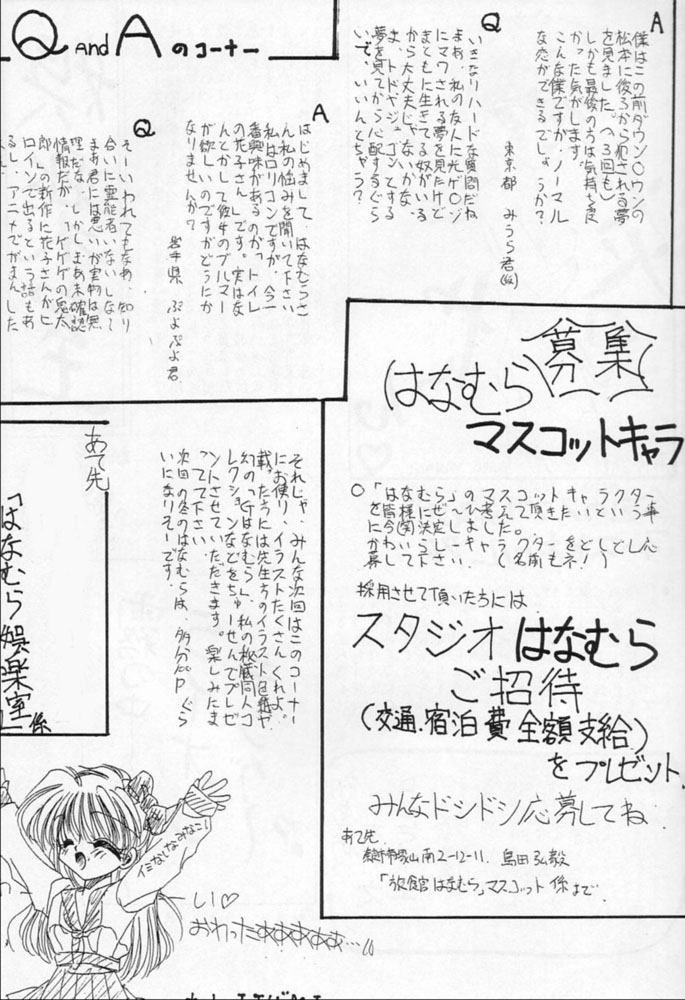 Q AND A のコーナー
A
僕はこの前ダウン○ウンの
松本に後ろから犯される夢
を見ました。(へ3回も)
しかも最後のうちは気持ち良
かった気がします。
こんな僕ですが、ノーマル
な恋ができるでしょうか？
東京都 みうら君(仮)
Q
いきなりハードな質問だね
よぉ、私の友人に光ゲ○ジ
にマワされる夢を見たけど
まともに生きてる奴がいる
から大丈夫じゃないかな。
ま、トドやジュゴンとする
夢を見てから心配するぐら
いで、いいんとちゃう？
A
はじめまして、はなむらさ
ん、私の悩みを聞いて下さい
私はロリコンですが、今一
番興味があるのが「トイレ
の花子さん」です。実はな
んとかして彼女のブルマー
が欲しいのですがどうにか
なりませんか？
岩手県 ぷよぷよ君
Q
そーいわれてもなぁ、知り
合いに霊能者いないしなぁ
まあ君には悪いが実物は無
理だな。しかしまあ未確認
情報だが、「ゲゲゲの鬼太
郎」の新作に花子さんがヒ
ロインで出るという話もあ
るし、アニメでがまんした
募集
はなむら
マスコットキャラ
○「はなむら」のマスコットキャラクター
を皆様にぜひ考えて頂きたいという事
に今(笑)決定〜しました。
かわいらしーキャラクターをどしどし応
募して下さい。(名前もネ！)
採用させて頂いたちには
スタジオはなむら
ご招待
(交通.宿泊費全額支給)
をプレゼント.
みんなドシドシ応募してね.
あて先.
南2-12-11. 島田弘毅
「旅館はなむら」マスコット係まで.
それじゃ、みんな次回はこのコーナー
にお便り、イラストたくさんくれよ。
載ったちには先生方のイラスト色紙や
幻の「Gはなむら」、私の秘蔵同人コ
レクションなどをちゅーせんでプレゼ
ントさせていただきます。楽しみたま
ってて下さい。
次回の冬のはなむらは、多分ぐ
いになりそーです。
あて先
「はなむら娯楽室」係
しい♡
おわったああああああ…